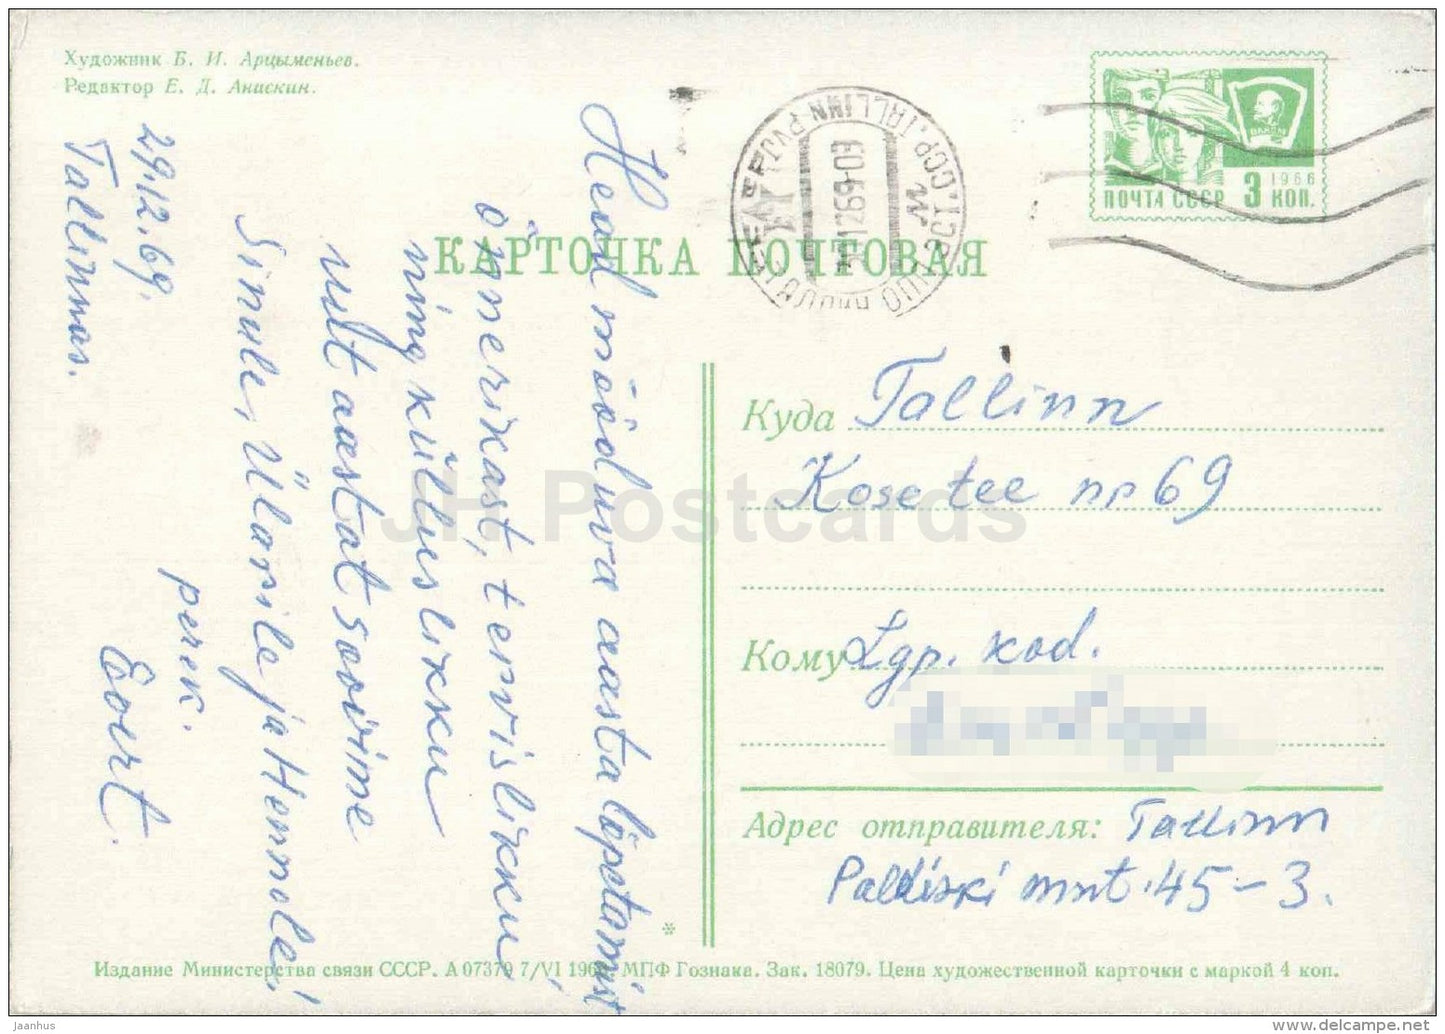 Художник Б. И. Арцыменьев.
Редактор Е. Д. Анискин.
29.12.69.
Tallinnas.
Head mööduva aasta lõpetamist
õnnerikast, tervislikku
ning küllueslikku
uut aastat soovime
Sinule, Ülarile ja Hennole!
perek.
Eort.
КАРТОЧКА ПОЧТОВАЯ
TALLINN
1269-03
ВЛКСМ
1966
ПОЧТА СССР 3 КОП.
Куда Tallinn
Kose tee nr 69
Кому Lgp. kod.
Адрес отправителя: Tallinn
Paldiski mnt. 45-3.
*
Издание Министерства связи СССР. А 07379 7/VI МПФ Гознака. Зак. 18079. Цена художественной карточки с маркой 4 коп.
JH Postcards
jaanhus
delcampe.net